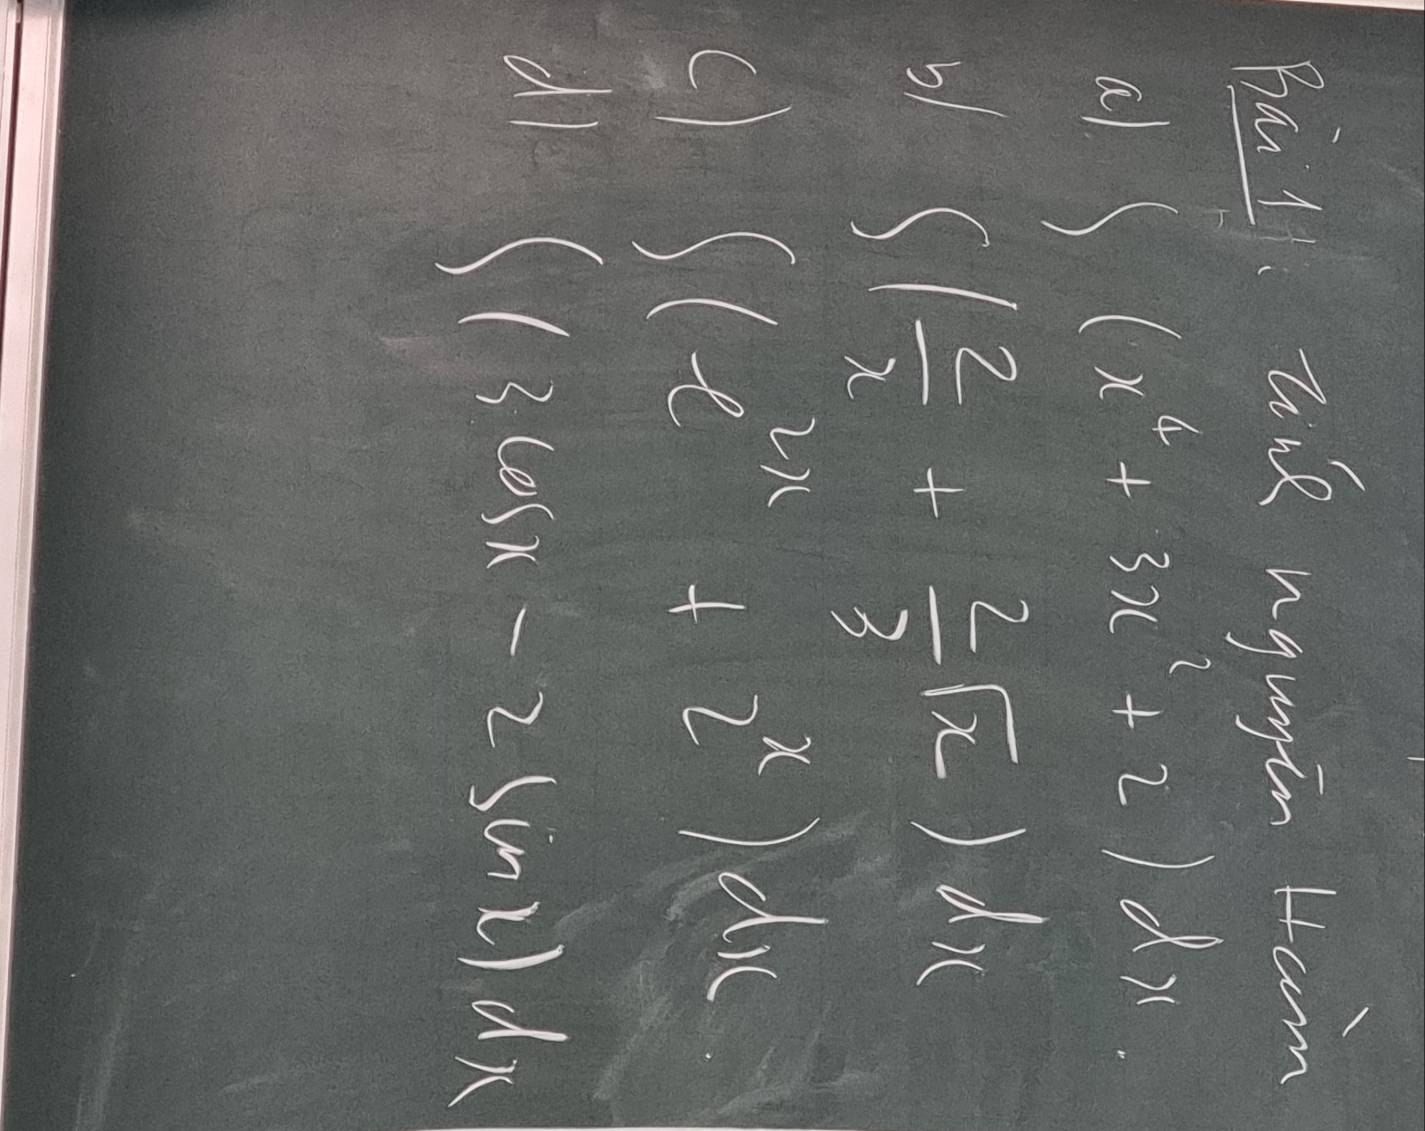 Bài 1: Tính nguyên Hàm
a) ∫ (x⁴ + 3x² + 2) dx.
b) ∫ (2/x + 2/3 √x) dx
c) ∫ (e²ˣ + 2ˣ) dx.
d) ∫ (3 cosx - 2 sinx) dx